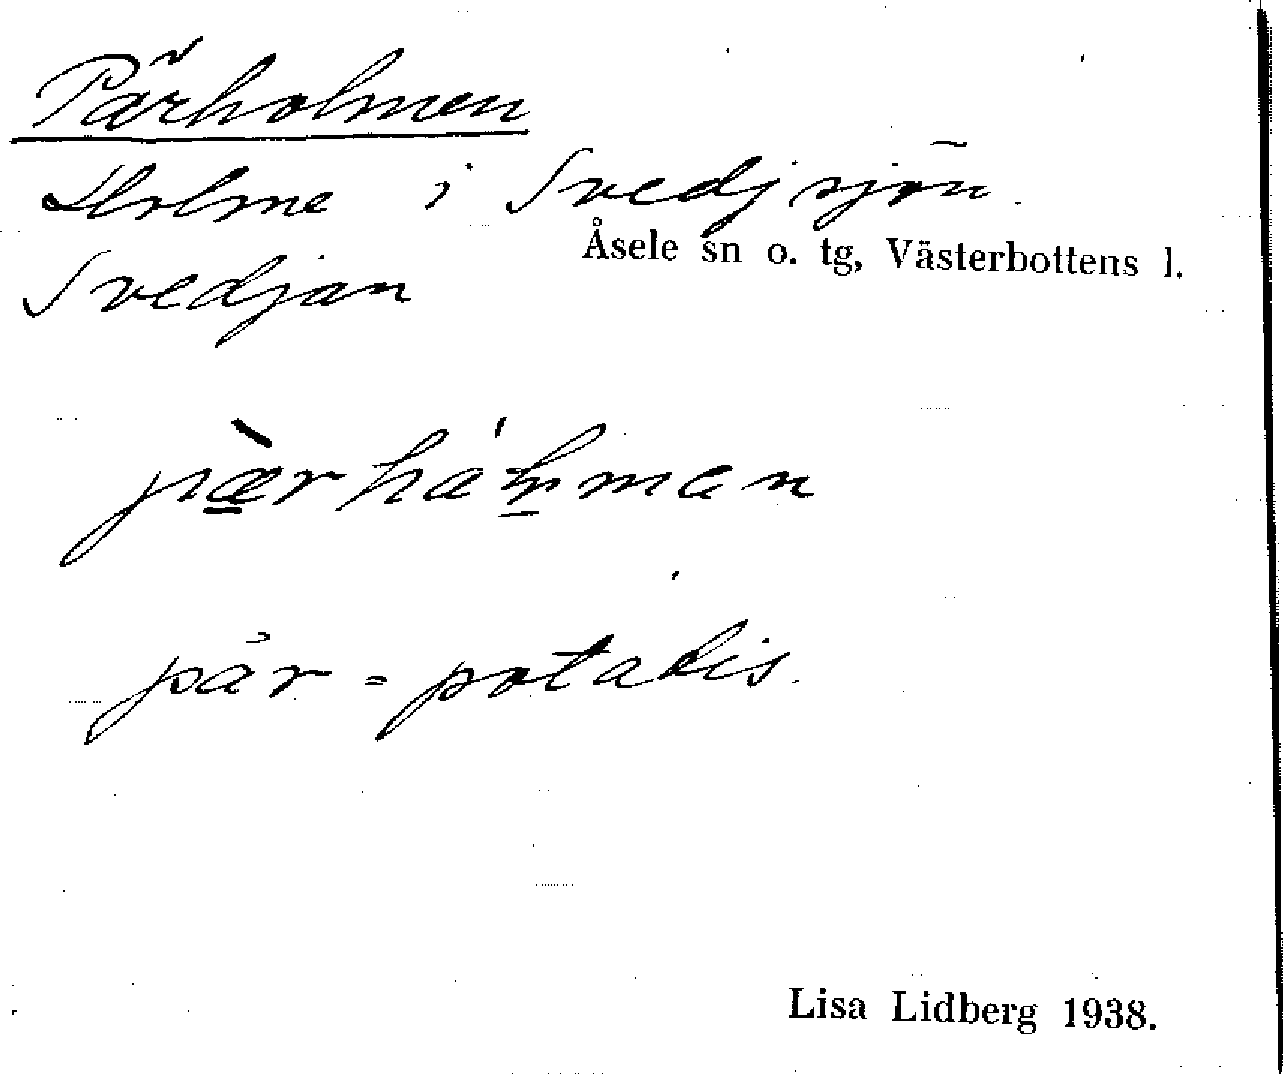 Pärholmen
Holme i Svedjsjön.
Åsele sn o. tg, Västerbottens l.
Svedjan
pær
pär = potatis.
Lisa Lidberg 1938.